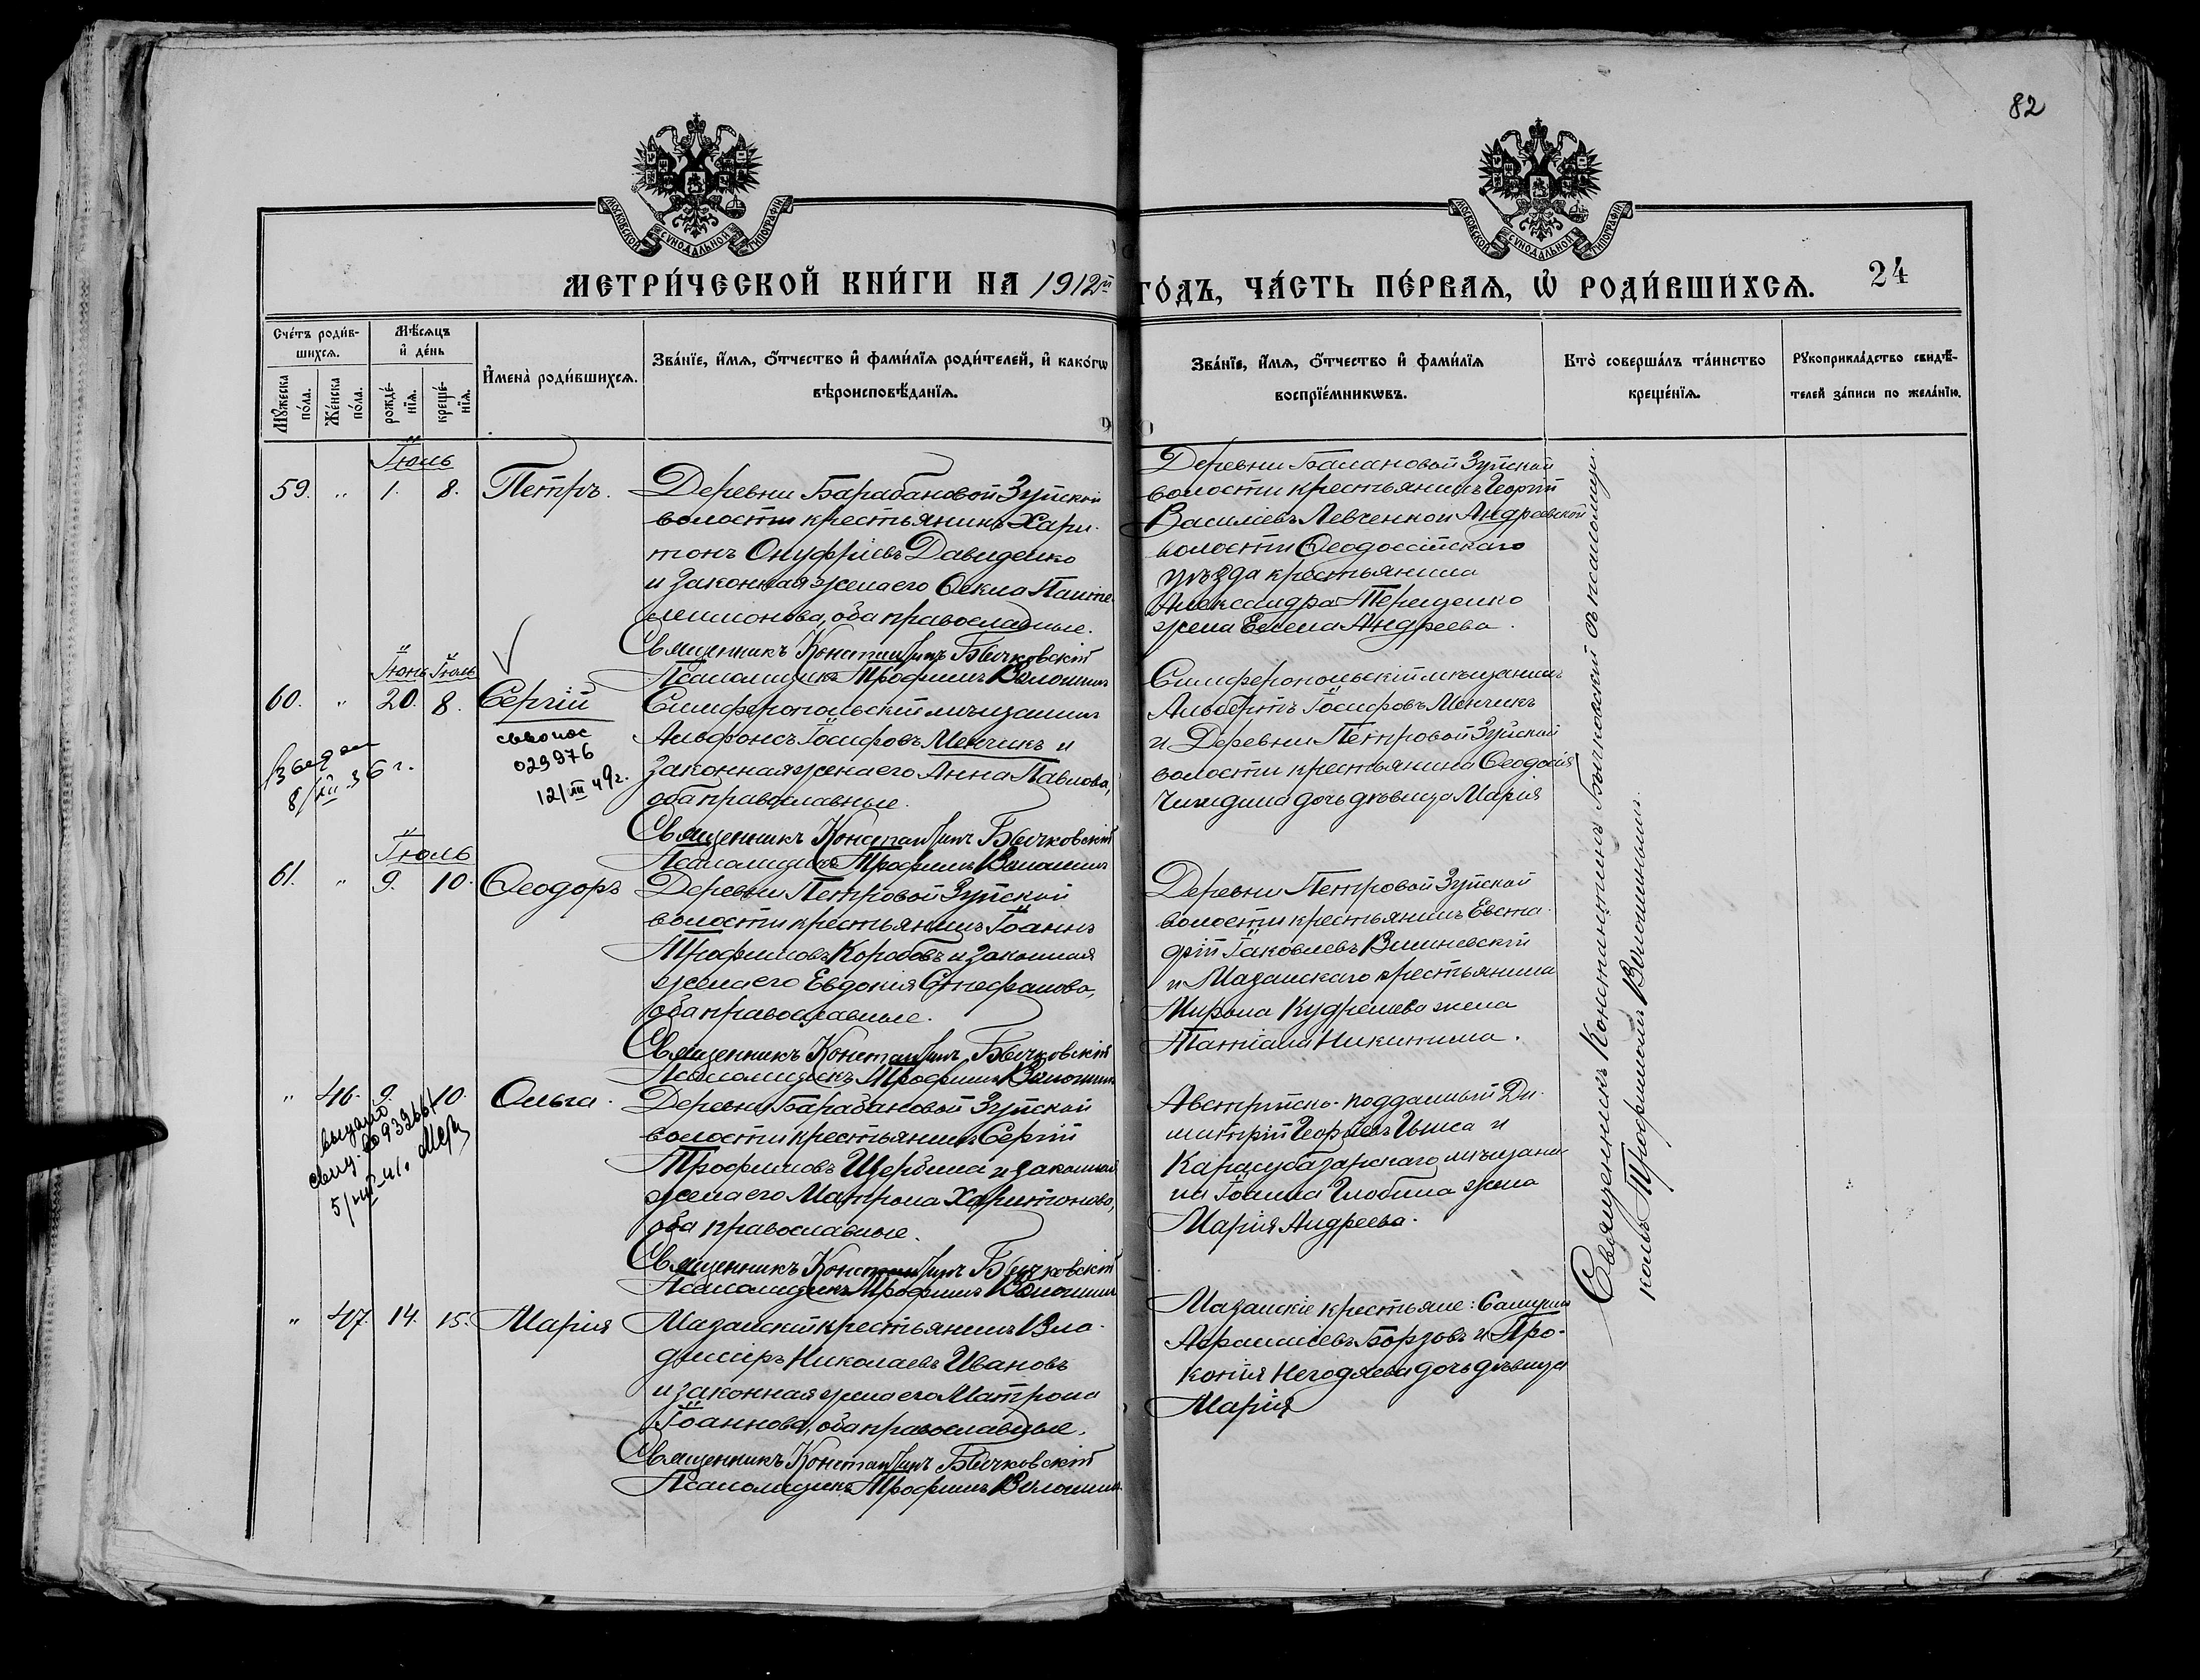 82
МОСКОВСКОЙ СѴНОДАЛЬНОЙ ТИПОГРАФІИ
МОСКОВСКОЙ СѴНОДАЛЬНОЙ ТИПОГРАФІИ
МЕТРИ́ЧЕСКОЙ КНИ́ГИ НА 1912й ГО́ДЪ, ЧА́СТЬ ПЕ́РВАЯ, Ѡ҆ РОДИ́ВШИХСѦ. 24
Сче́тъ роди́в-
шихсѧ.
Мѣ́сѧцъ
и҆ де́нь
Мꙋ́жеска
по́ла.
Же́нска
по́ла.
рожде́-
нїѧ.
креще́-
нїѧ.
И҆мена̀ роди́вшихсѧ.
Зва́нїе, и҆́мѧ, ѻ҆́тчество и҆ фами́лїѧ роди́телей, и҆ како́гѡ
вѣроисповѣ́данїѧ.
Зва́нїе, и҆́мѧ, ѻ҆́тчество и҆ фами́лїѧ
воспрїе́мникѡвъ.
Кто̀ соверша́лъ та́инство
креще́нїѧ.
Рꙋкоприкла́дство свидѣ́-
телей за́писи по жела́нїю.
Іюль
59. " 1. 8. Петръ.
Деревни Барабановой Зуйской
волости крестьянинъ Хари-
тонъ Онуфріевъ Давиденко
и законная жена его Ѳекла Панте-
леимонова, оба православные.
Священникъ Константинъ Бычковскій
Псаломщикъ Трофимъ Волошинъ
Деревни Балановой Зуйской
волости крестьянинъ Георгій
Василіевъ Левченко и Андреевской
волости Ѳеодосійскаго
уѣзда крестьянина
Александра Терещенко
жена Елена Андреева.
Іюнь Іюль
60. " 20. 8. Сергій
Взведен
8/XII 36 г.
свволос
029976
12/III 49г.
Симферопольскій мѣщанинъ
Альфонсъ Іосифовъ Менчикъ и
законная жена его Анна Павлова,
оба православные.
Священникъ Константинъ Бычковскій
Псаломщикъ Трофимъ Волошинъ
Симферопольскій мѣщанинъ
Альбертъ Іосифовъ Менчикъ
и Деревни Петровой Зуйской
волости крестьянина Ѳеодосія
дочь дѣвица Марія
Іюль
61. " 9. 10. Ѳеодоръ
Деревни Петровой Зуйской
волости крестьянинъ Іоаннъ
Трофимовъ Коробовъ и законная
жена его Евдокія Стефанова,
оба православные.
Священникъ Константинъ Бычковскій
Псаломщикъ Трофимъ Волошинъ
Деревни Петровой Зуйской
волости крестьянинъ Евста-
фій Іаковлевъ Вишневскій
и Мазанскаго крестьянина
Мирона Кудрешева жена
Татіана Никитина.
" 46. 9. 10. Ольга.
выдано
свид. 093266
5/VIII-41.
Деревни Барабановой Зуйской
волости крестьянинъ Сергій
Трофимовъ Щербина и законная
жена его Матрона Харитонова,
оба православные.
Священникъ Константинъ Бычковскій
Псаломщикъ Трофимъ Волошинъ
Австрійско-подданный Ди-
митрій Георгіевъ и
Карасубазарскаго мѣщани-
на Іоанна Глобина жена
Марія Андреева.
" 47. 14. 15. Марія
Мазанскій крестьянинъ Вла-
димиръ Николаевъ Ивановъ
и законная жена его Матрона
Іоаннова, оба православные.
Священникъ Константинъ Бычковскій
Псаломщикъ Трофимъ Волошинъ
Мазанскіе крестьяне: Самуилъ
Аѳанасіевъ Борзовъ и Про-
копія Негодяева дочь дѣвица
Марія
Священникъ Константинъ Бычковскій съ псаломщи-
комъ Трофимомъ Волошинымъ.